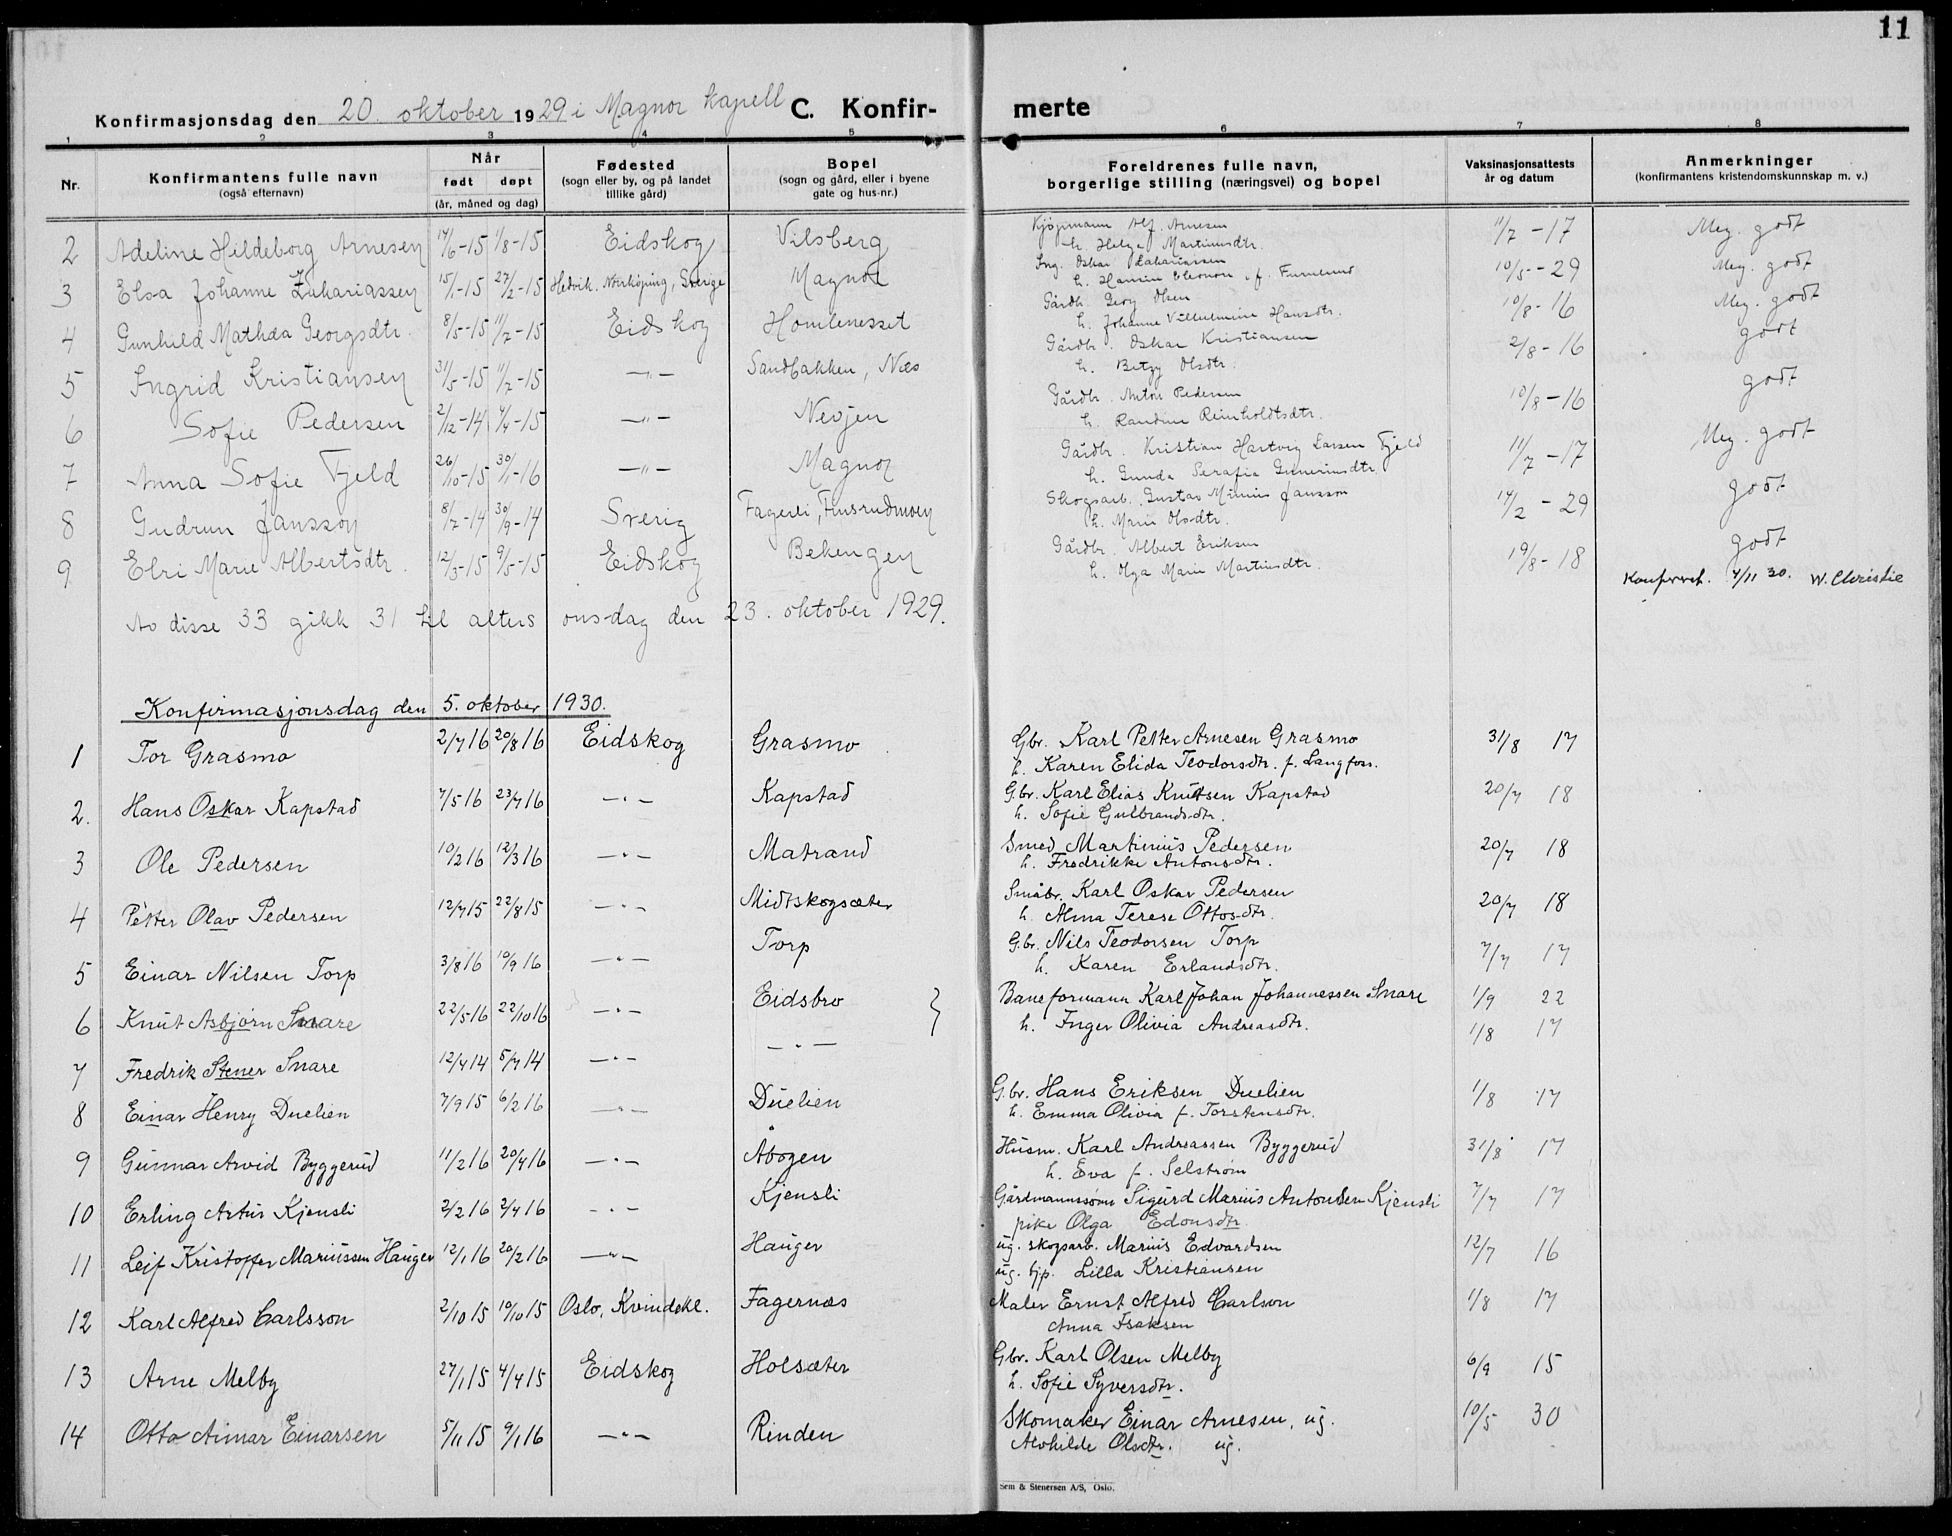 11
Konfirmasjonsdag den 20. oktober 1929 i Magnor kapell C. Konfir- merte
1 2 3 4 5 6 7 8
Nr. Konfirmantens fulle navn (også efternavn) Når født døpt (år, måned og dag) Fødested (sogn eller by, og på landet tillike gård) Bopel (sogn og gård, eller i byene gate og hus-nr.) Foreldrenes fulle navn, borgerlige stilling (næringsvei) og bopel Vaksinasjonsattests år og datum Anmerkninger (konfirmantens kristendomskunnskap m. v.)
2 Adeline Hildeborg Arnesen 17/6-15 1/8-15 Eidskog Vilsberg Kjøpmann Alf. Arnesen 11/7-17 Meg. godt
h. Helga Martinusdtr.
3 Elsa Johanne Zakariassen 15/1-15 27/2-15 Hedvik. Norrköping, Sverige Magnor Ing. Oskar Zakariassen 10/5-29 Meg. godt
h. Eleonore f. Furulund
4 Gunhild Mathda Georgsdtr. 8/5-15 11/7-15 Eidskog Homlenesset Gårdb. Georg Olsen 10/8-16 Meg. godt
h. Johanne Vilhelmine Hansdtr.
5 Ingrid Kristiansen 31/5-15 11/7-15 —"— Sandbakken, Næs Gårdbr. Oskar Kristiansen 2/8-16 godt
h. Betzy Olsdtr.
6 Sofie Pedersen 2/12-14 4/4-15 —"— Nevjen Gårdbr. Anton Pedersen 10/8-16 godt
h. Randine Reinholdtsdtr.
7 Anna Sofie Fjeld 26/10-15 30/1-16 —"— Magnor Gårdbr. Kristian Hartvig Larsen Fjeld 11/7-17 Meg. godt
h. Gunda Serafia Gunerinsdtr.
8 Gudrun Jansson 8/7-14 30/9-14 Sverig Fagerli, Finsrudmoen Skogsarb. Gustav Jansson 14/2-29 godt
h. Marie Olsdtr.
9 Elri Marie Albertsdtr. 12/3-15 9/5-15 Eidskog Bekengen Gårdbr. Albert Eriksen 19/8-18 godt
h. Olga Marie Martinsdtr. 4/11 30. W. Christie
Av disse 33 gikk 31 til alters onsdag den 23. oktober 1929.
Konfirmasjonsdag den 5. oktober 1930.
1 Tor Grasmo 2/7 16 20/8 16 Eidskog Grasmo Gbr. Karl Petter Arnesen Grasmo 31/8 17
h. Karen Elida Teodorsdtr. f. Langfoss.
2. Hans Oskar Kapstad 7/5 16 23/7 16 —"— Kapstad G.br. Karl Elias Knutsen Kapstad 20/7 18
h. Sofie Gulbrandsdtr.
3 Ole Pedersen 10/2 16 12/3 16 —"— Matrand Smed Martinius Pedersen 20/7 18
h. Fredrikke Antonsdtr.
4 Petter Olav Pedersen 12/7 15 22/8 15 —"— Midtskogsæter Småbr. Karl Oskar Pedersen 20/7 18
h. Alma Terese Ottosdtr.
5 Einar Nilsen Torp 3/8 16 10/9 16 —"— Torp G.br. Nils Teodorsen Torp 7/7 17
h. Karen Erlandsdtr.
6 Knut Asbjørn Snare 22/5 16 22/10 16 —"— Eidsbro } Baneformann Karl Johan Johannessen Snare 1/9 22
h. Inger Olivia Andreasdtr. 1/8 17
7 Fredrik Stener Snare 12/4 14 5/7 14 —"— —"—
8 Einar Henry Duelien 7/9 15 6/2 16 —"— Duelien G.br. Hans Eriksen Duelien 1/8 17
h. Emma Olivia f. Torstensdtr.
9 Gunnar Arvid Byggerud 11/2 16 20/4 16 —"— Åbogen Husm. Karl Andreassen Byggerud 31/8 17
h. Eva f. Selstrøm
10 Erling Artur Kjensli 2/2 16 2/4 16 —"— Kjensli Gårdmannssønn Sigurd Marius Antonsen Kjensli 7/7 17
pike Olga Edonsdtr.
11 Leif Kristoffer Mariussen Hauger 12/1 16 20/2 16 —"— Hauger ug. skogsarb. Marius Edvardsen 12/7 16
ug. tjp. Lilla Kristiansen
12 Karl Alfred Carlsson 2/10 15 10/10 15 Oslo, Kvindekl. Fagernæs Maler Ernst Alfred Carlson 1/8 17
Anna Isaksen
13 Arne Melby 27/1 15 4/4 15 Eidskog Holsæter Gbr. Karl Olsen Melby 6/9 15
h. Sofie Syversdtr.
14 Otto Aimar Einarsen 5/11 15 9/1 16 —"— Rinden Skomaker Einar Arnesen, ug. 10/5 30
Alvhilde Olsdtr. ug.
Sem & Stenersen A/S, Oslo.